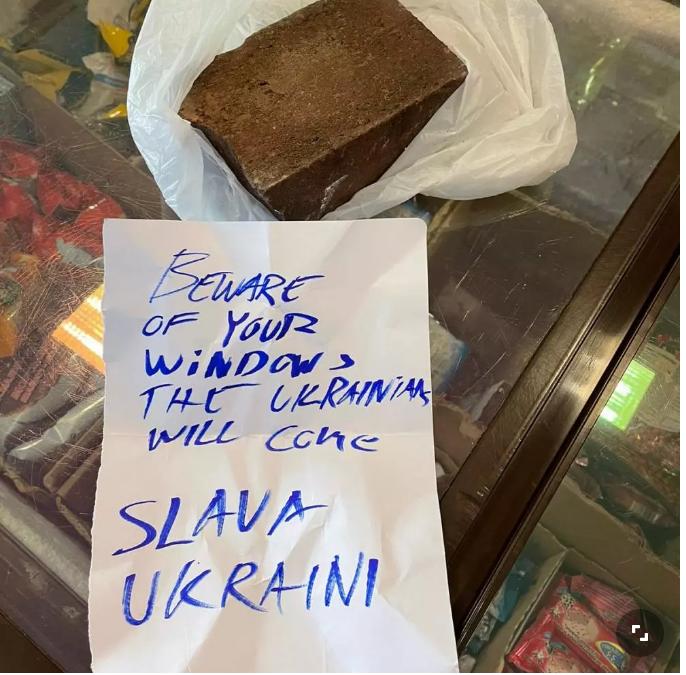 BEWARE
OF YOUR
WINDOWS
THE UKRAINIANS
WILL COME
SLAVA
UKRAINI